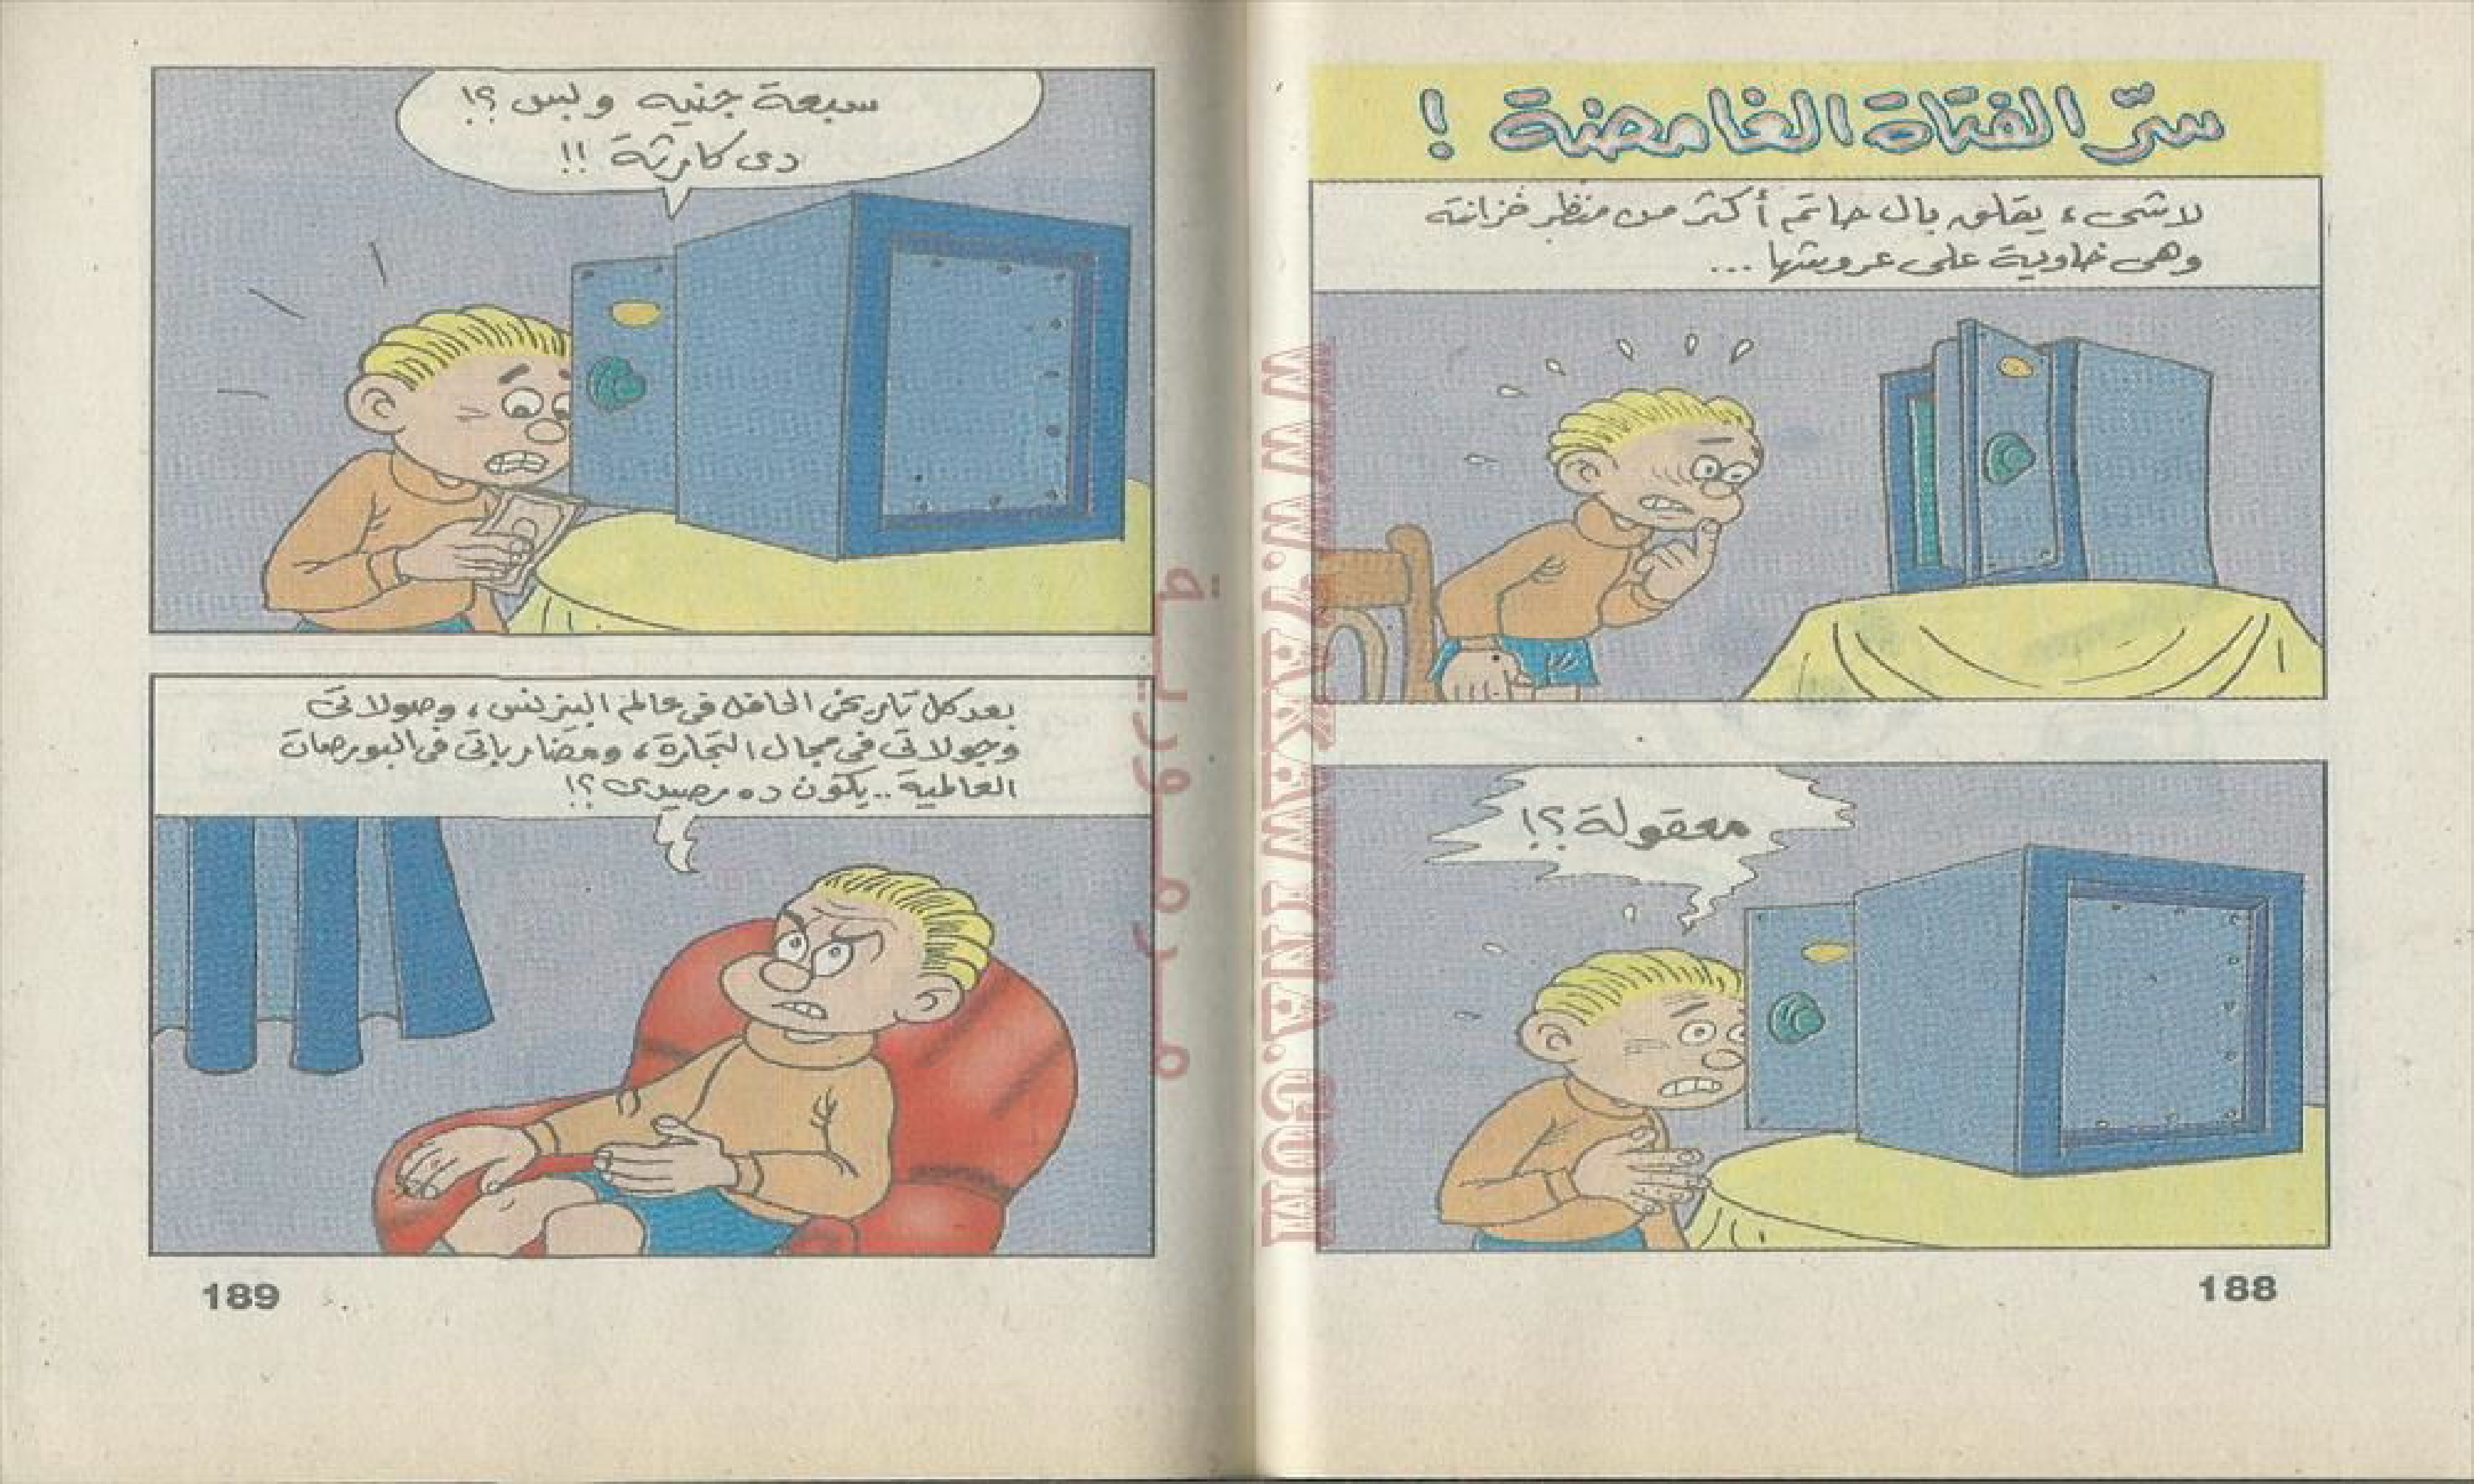 سرّ الفتاة الغامضة !
لا شىء يقلق بال حاتم أكثر من منظر خزانته
وهى خاوية على عروشها ...
معقولة ؟!
188
سبعة جنيه وبس ؟!
دى كارثة !!
بعد كل تاريخى الحافل فى عالم البيزنس ، وصولاتى
وجولاتى فى مجال التجارة ، ومضارباتى فى البورصات
العالمية .. يكون ده رصيدى ؟!
189